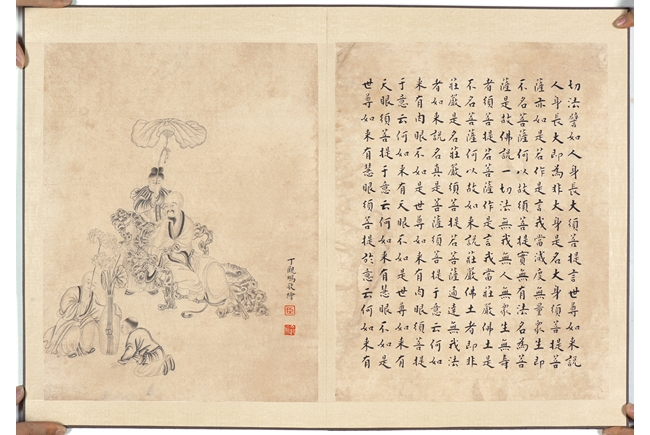 切法譬如人身長大須菩提言世尊如來說
人身長大即為非大身是名大身須菩提菩
薩亦如是若作是言我當滅度無量衆生即
不名菩薩何以故須菩提實無有法名為菩
薩是故佛說一切法無我無人無衆生無壽
者須菩提若菩薩作是言我當莊嚴佛土是
不名菩薩何以故如來說莊嚴佛土者即非
莊嚴是名莊嚴須菩提若菩薩通達無我法
者如來說名真是菩薩須菩提于意云何如
來有肉眼不如是世尊如來有肉眼須菩提
于意云何如來有天眼不如是世尊如來有
天眼須菩提于意云何如來有慧眼不如是
世尊如來有慧眼須菩提於意云何如來有
丁觀鵬敬繪